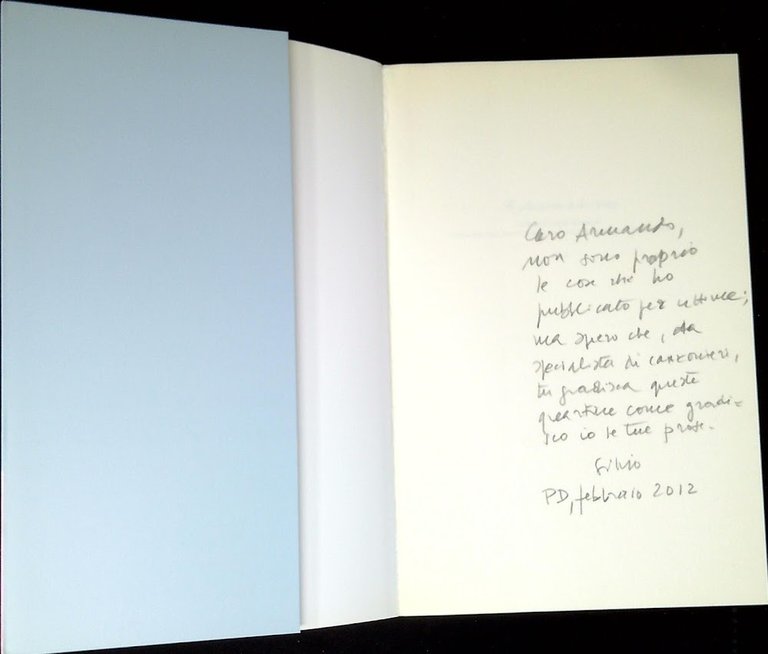 Caro Armando,
non sono proprio
le cose che ho
pubblicato per ultime;
ma spero che, da
specialista di canzonieri,
tu gradisca queste
quartine come gradi=
sco io le tue prose.
Silvio
PD, febbraio 2012